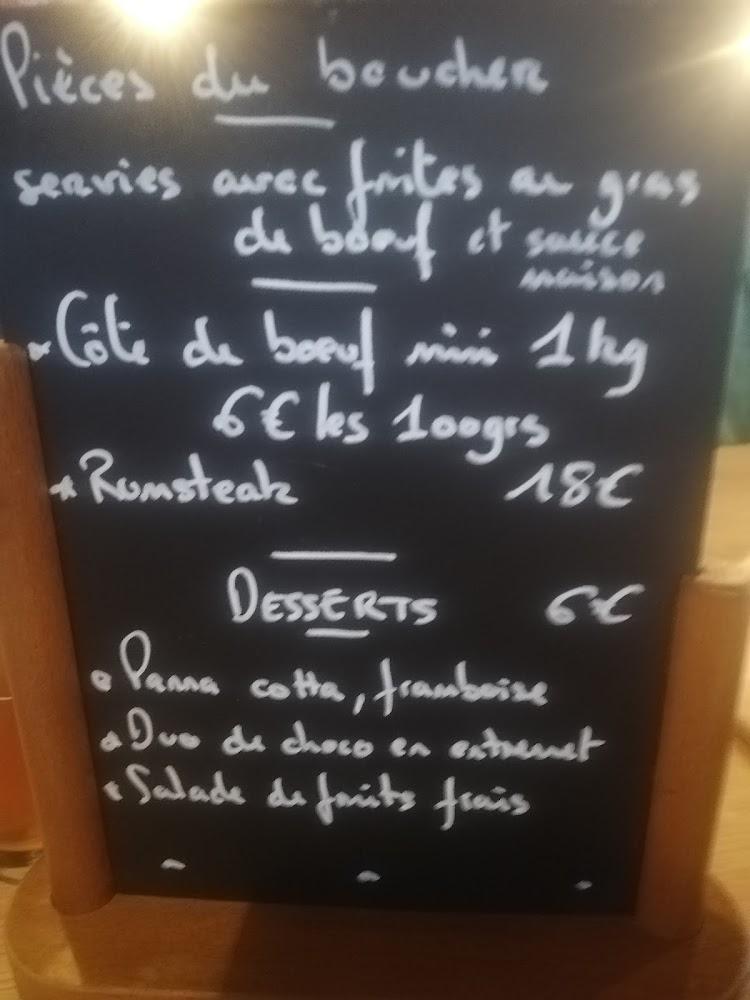 Pièces du boucher
servies avec frites au gras
de boeuf et sauce
maison
* Côte de boeuf mini 1kg
6€ les 100grs
* Rumsteak 18€
DESSERTS 6€
• Panna cotta, framboise
• Duo de choco en entremet
• Salade de fruits frais